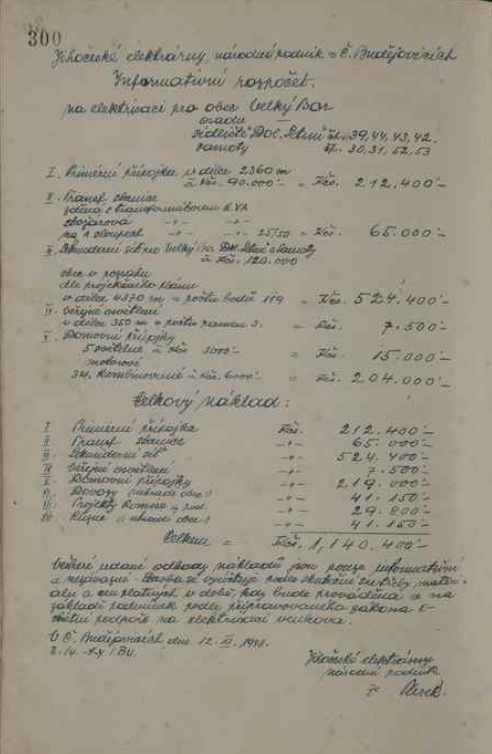 300
Jihočeské elektrárny, národní podnik v Č. Budějovicích
Informativní rozpočet.
na elektrisaci pro obec Velký Bor
osadu —
sídliště Dol. Letné čí. 39, 44, 43, 42.
samoty čp. 30, 31, 52, 53
I. Primérní přípojka v délce 2360 m
à Kčs. 90.000·- = Kčs. 212.400·-
II. Transf. stanice
jedna s transformátorem KVA
stožárová -"- -"-
na 2 sloupech -"- -"- 25/50 = Kčs. 65.000·-
III. Sekundérní síť pro Velký Bor Dol. Letné a Samoty
à Kčs. 120.000
obec v rozsahu
dle projekčního plánu
v délce 4370 m o počtu bodů 119 = Kčs. 524.400·-
IV. Veřejné osvětlení
v délce 350 m o počtu ramen 3. = Kčs. 7.500·-
V. Domovní přípojky
5 světelné à Kčs 3000·- = Kčs. 15.000·-
motorové
34. Kombinované à Kčs. 6000·- = Kčs. 204.000·-
Celkový náklad:
I Primérní přípojka Kčs. 212.400·-
II Transf. stanice -"- 65.000·-
III Sekundérní síť -"- 524.400·-
IV Veřejné osvětlení -"- 7.500·-
V. Domovní přípojky -"- 219.000·-
VI. Dovozy nahradí obec -"- 41.150·-
VII. Projekty Komise a pod. -"- 29.800·-
VIII. Různé a uhradí obec -"- 41.150·-
Celkem = Kčs. 1,140.400·-
Veškeré udané odhady nákladů jsou pouze informativní
a nezávazné. Stavba se vyúčtuje podle skutečné spotřeby materi-
álu a cen platných v době, kdy bude prováděna a na
základě podmínek podle připravovaného zákona o
státní podpoře na elektrisaci venkova.
V Č. Budějovicích, dne 12.
Jihočeské elektrárny
národní podnik